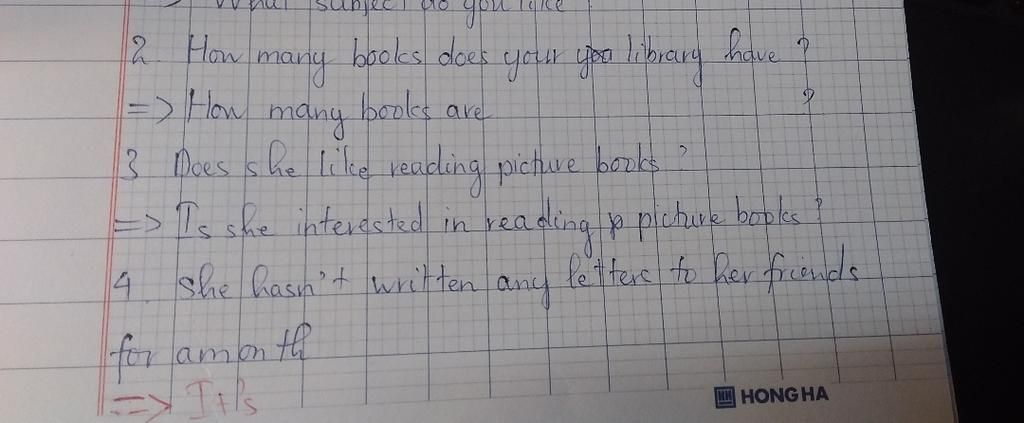 What subject do you like
2. How many books does your library have ?
=> How many books are ?
3 Does she like reading picture books ?
=> Is she interested in reading picture books ?
4. She hasn't written any letters to her friends
for a month
=> It's
HONG HA